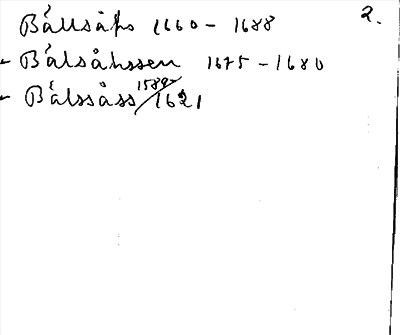 Bållsåhs 1660 - 1688 2.
- Bålsåhssen 1675 - 1680
- Bålssåss 1589/1621